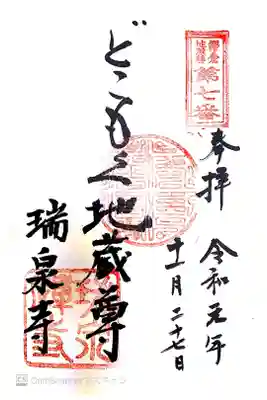 鎌倉
地蔵尊
第七番
奉拝
令和元年
十一月二十七日
どこもく地蔵尊
瑞泉寺